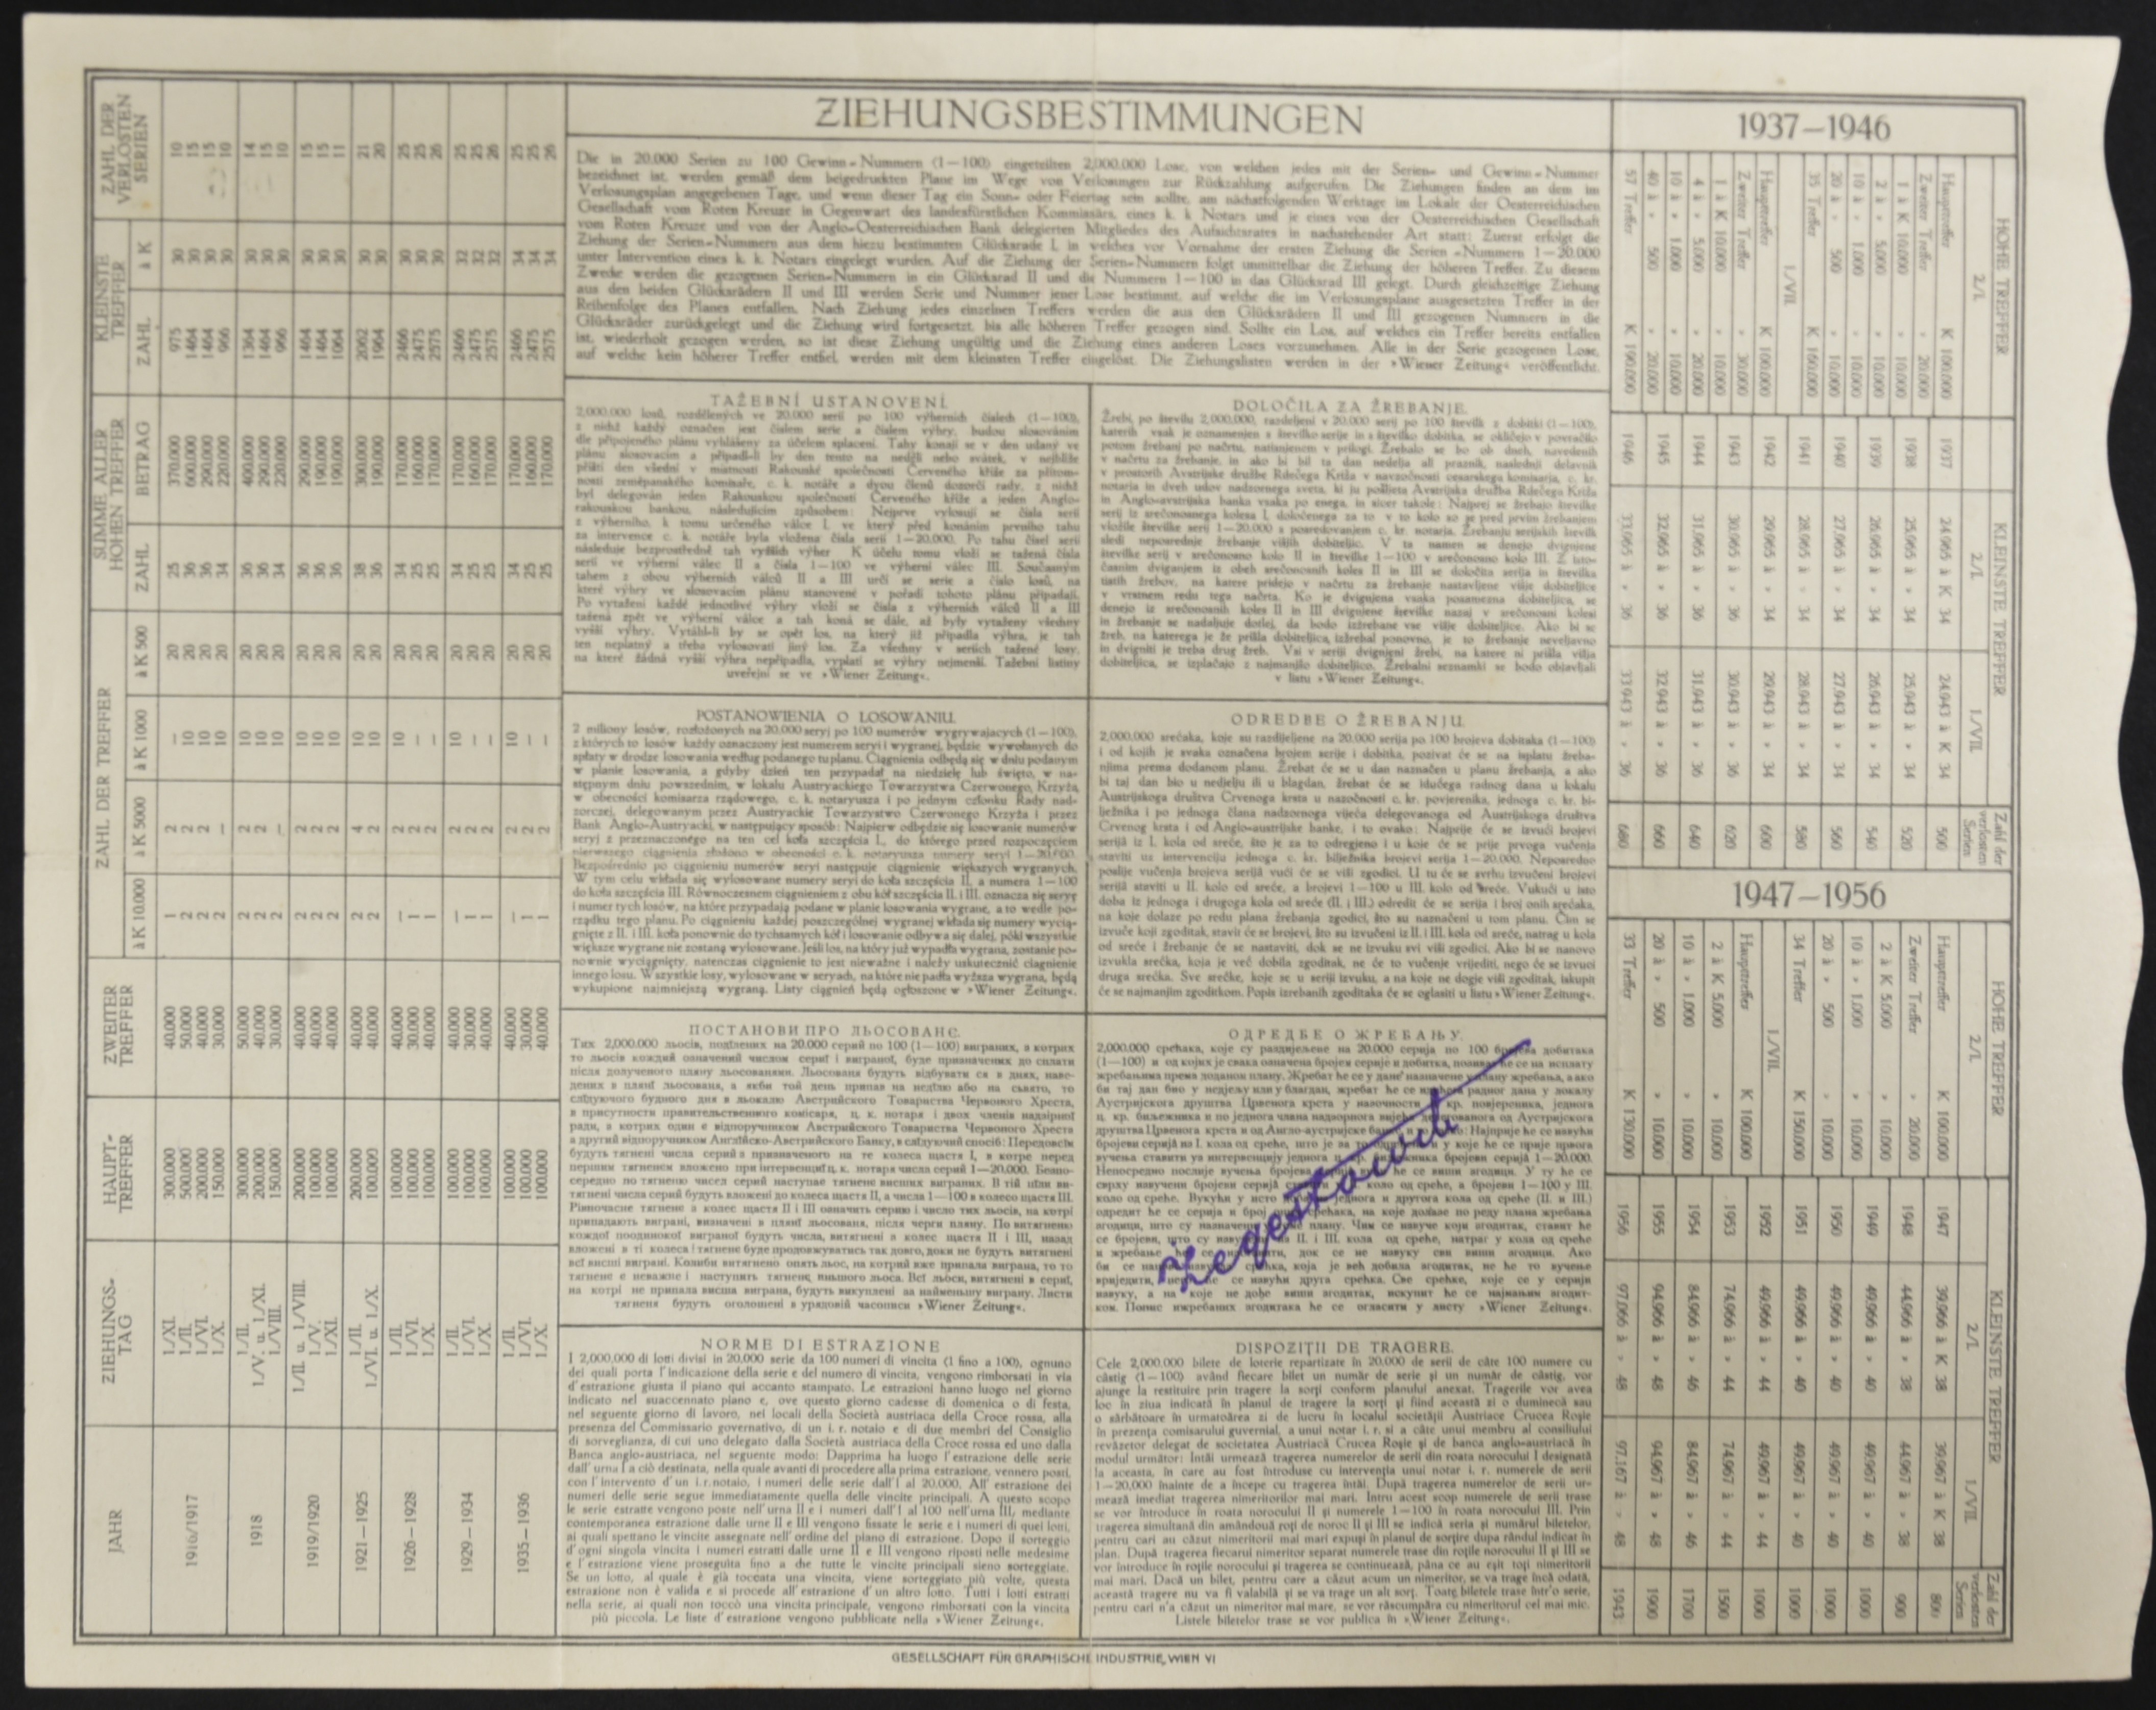 JAHR ZIEHUNGS-TAG HAUPT-TREFFER ZWEITER TREFFER ZAHL DER TREFFER SUMME ALLER HOHEN TREFFER KLEINSTE TREFFER ZAHL DER VERLOSTEN SERIEN
à K 10.000 à K 5000 à K 1000 à K 500 ZAHL BETRAG ZAHL à K
1916/1917 1./XI. 300.000 40.000 1 2 — 20 25 370.000 975 30 10
1./II. 500.000 50.000 2 2 10 20 36 600.000 1464 30 15
1./VI. 200.000 40.000 2 2 10 20 36 290.000 1464 30 15
1./X. 150.000 30.000 2 — 10 20 34 220.000 966 30 10
1918 1./II. 300.000 50.000 2 2 10 20 36 400.000 1364 30 14
1./V. u. 1./XI. 200.000 40.000 2 2 10 20 36 290.000 1464 30 15
1./VIII. 150.000 30.000 2 — 10 20 34 220.000 966 30 10
1919/1920 1./II. u. 1./VIII. 200.000 40.000 2 2 10 20 36 290.000 1464 30 15
1./V. 100.000 40.000 2 2 10 20 36 190.000 1464 30 15
1./XI. 100.000 40.000 2 2 10 20 36 190.000 1064 30 11
1921—1925 1./II. 200.000 40.000 2 4 10 20 38 300.000 2062 30 21
1./VI. u. 1./X. 100.000 40.000 2 2 10 20 36 190.000 1964 30 20
1926—1928 1./II. 100.000 40.000 — 2 10 20 34 170.000 2466 30 25
1./VI. 100.000 30.000 1 2 — 20 25 160.000 2475 30 25
1./X. 100.000 40.000 1 2 — 20 25 170.000 2575 30 26
1929—1934 1./II. 100.000 40.000 — 2 10 20 34 170.000 2466 32 25
1./VI. 100.000 30.000 1 2 — 20 25 160.000 2475 32 25
1./X. 100.000 40.000 1 2 — 20 25 170.000 2575 32 26
1935—1936 1./II. 100.000 40.000 — 2 10 20 34 170.000 2466 34 25
1./VI. 100.000 30.000 1 2 — 20 25 160.000 2475 34 25
1./X. 100.000 40.000 1 2 — 20 25 170.000 2575 34 26
ZIEHUNGSBESTIMMUNGEN
Die in 20.000 Serien zu 100 Gewinn-Nummern (1—100) eingeteilten 2,000.000 Lose, von welchen jedes mit der Serien- und Gewinn-Nummer
bezeichnet ist, werden gemäß dem beigedruckten Plane im Wege von Verlosungen zur Rückzahlung aufgerufen. Die Ziehungen finden an dem im
Verlosungsplan angegebenen Tage, und wenn dieser Tag ein Sonn- oder Feiertag sein sollte, am nächstfolgenden Werktage im Lokale der Oesterreichischen
Gesellschaft vom Roten Kreuze in Gegenwart des landesfürstlichen Kommissärs, eines k. k. Notars und je eines von der Oesterreichischen Gesellschaft
vom Roten Kreuze und von der Anglo-Oesterreichischen Bank delegierten Mitgliedes des Aufsichtsrates in nachstehender Art statt: Zuerst erfolgt die
Ziehung der Serien-Nummern aus dem hiezu bestimmten Glücksrade I, in welches vor Vornahme der ersten Ziehung die Serien-Nummern 1—20.000
unter Intervention eines k. k. Notars eingelegt wurden. Auf die Ziehung der Serien-Nummern folgt unmittelbar die Ziehung der höheren Treffer. Zu diesem
Zwecke werden die gezogenen Serien-Nummern in ein Glücksrad II und die Nummern 1—100 in das Glücksrad III gelegt. Durch gleichzeitige Ziehung
aus den beiden Glücksrädern II und III werden Serie und Nummer jener Lose bestimmt, auf welche die im Verlosungsplane ausgesetzten Treffer in der
Reihenfolge des Planes entfallen. Nach Ziehung jedes einzelnen Treffers werden die aus den Glücksrädern II und III gezogenen Nummern in die
Glücksräder zurückgelegt und die Ziehung wird fortgesetzt, bis alle höheren Treffer gezogen sind. Sollte ein Los, auf welches ein Treffer bereits entfallen
ist, wiederholt gezogen werden, so ist diese Ziehung ungültig und die Ziehung eines anderen Loses vorzunehmen. Alle in der Serie gezogenen Lose,
auf welche kein höherer Treffer entfiel, werden mit dem kleinsten Treffer eingelöst. Die Ziehungslisten werden in der »Wiener Zeitung« veröffentlicht.
TAŽEBNÍ USTANOVENÍ.
2,000.000 losů, rozdělených ve 20.000 serií po 100 výherních číslech (1—100),
z nichž každý označen jest číslem serie a číslem výhry, budou slosováním
dle připojeného plánu vyhlášeny za účelem splacení. Tahy konají se v den udaný ve
plánu slosovacím a připadl-li by den tento na neděli nebo svátek, v nejblíže
příští den všední v místnosti Rakouské společnosti Červeného kříže za přítom-
nosti zeměpanského komisaře, c. k. notáře a dvou členů dozorčí rady, z nichž
byl delegován jeden Rakouskou společností Červeného kříže a jeden Anglo-
rakouskou bankou, následujícím způsobem: Nejprve vylosují se čísla serií
z výherního, k tomu určeného válce I, ve který před konáním prvního tahu
za intervence c. k. notáře byla vložena čísla serií 1—20.000. Po tahu čísel serií
následuje bezprostředně tah vyšších výher. K účelu tomu vloží se tažená čísla
serií ve výherní válec II a čísla 1—100 ve výherní válec III. Současným
tahem z obou výherních válců II a III určí se serie a číslo losů, na
které výhry ve slosovacím plánu stanovené v pořadí tohoto plánu připadají.
Po vytažení každé jednotlivé výhry vloží se čísla z výherních válců II a III
tažená zpět ve výherní válce a tah koná se dále, až byly vytaženy všechny
vyšší výhry. Vytáhl-li by se opět los, na který již připadla výhra, je tah
ten neplatný a třeba vylosovati jiný los. Za všechny v seriích tažené losy,
na které žádná vyšší výhra nepřipadla, vyplatí se výhry nejmenší. Tažební listiny
uveřejní se ve »Wiener Zeitung«.
DOLOČILA ZA ŽREBANJE.
Žrebi, po številu 2,000.000, razdeljeni v 20.000 serij po 100 številk z dobitki (1—100),
katerih vsak je oznamenjen s številko serije in s številko dobitka, se okličejo v povračilo
potom žrebanj po načrtu, natisnjenem v prilogi. Žrebalo se bo ob dneh, navedenih
v načrtu za žrebanje, in ako bi bil ta dan nedelja ali praznik, naslednji delavnik
v prostorih Avstrijske družbe Rdečega Križa v navzočnosti cesarskega komisarja, c. kr.
notarja in dveh udov nadzornega sveta, ki ju pošljeta Avstrijska družba Rdečega Križa
in Anglo-avstrijska banka vsaka po enega, in sicer takole: Najprej se žrebajo številke
serij iz srečonosnega kolesa I, določenega za to v to kolo so je pred prvim žrebanjem
vložile številke serij 1—20.000 s posredovanjem c. kr. notarja. Žrebanju serijskih številk
sledi neposrednje žrebanje višjih dobitelic. V ta namen se denejo dvignjene
številke serij v srečonosno kolo II in številke 1—100 v srečonosno kolo III. Z isto-
časnim dviganjem iz obeh srečonosnih koles II in III se določita serija in številka
tistih žrebov, na katere pridejo v načrtu za žrebanje nastavljene višje dobiteljice
v vrstnem redu tega načrta. Ko je dvignjena vsaka posamezna dobiteljica, se
denejo iz srečonosnih koles II in III dvignjene številke nazaj v srečonosni kolesi
in žrebanje se nadaljuje dotlej, da bodo izžrebane vse višje dobiteljice. Ako bi se
žreb, na katerega je že prišla dobiteljica, izžrebal ponovno, je to žrebanje neveljavno
in dvigniti je treba drug žreb. Vsi v seriji dvignjeni žrebi, na katere ni prišla višja
dobiteljica, se izplačajo z najmanjšo dobiteljico. Žrebalni seznamki se bodo objavljali
v listu »Wiener Zeitung«.
POSTANOWIENIA O LOSOWANIU.
2 miliony losów, rozłożonych na 20.000 seryj po 100 numerów wygrywających (1—100),
z których to losów każdy oznaczony jest numerem seryi i wygranej, będzie wywołanych do
spłaty w drodze losowania według podanego tu planu. Ciągnienia odbędą się w dniu podanym
w planie losowania, a gdyby dzień ten przypadał na niedzielę lub święto, w na-
stępnym dniu powszednim, w lokalu Austryackiego Towarzystwa Czerwonego Krzyża,
w obecności komisarza rządowego, c. k. notaryusza i po jednym członku Rady nad-
zorczej, delegowanym przez Austryackie Towarzystwo Czerwonego Krzyża i przez
Bank Anglo-Austryacki, w następujący sposób: Najpierw odbędzie się losowanie numerów
seryj z przeznaczonego na ten cel koła szczęścia I, do którego przed rozpoczęciem
pierwszego ciągnienia złożono w obecności c. k. notaryusza numery seryi 1—20.000.
Bezpośrednio po ciągnieniu numerów seryi następuje ciągnienie większych wygranych.
W tym celu wkłada się wylosowane numery seryi do koła szczęścia II, a numera 1—100
do koła szczęścia III. Równoczesnem ciągnieniem z obu kół szczęścia II. i III. oznacza się seryę
i numer tych losów, na które przypadają podane w planie losowania wygrane, a to wedle po-
rządku tego planu. Po ciągnieniu każdej poszczególnej wygranej wkłada się numery wycią-
gnięte z II. i III. koła ponownie do tychsamych kół i losowanie odbywa się dalej, póki wszystkie
większe wygrane nie zostaną wylosowane. Jeśli los, na który już wypadła wygrana, zostanie po-
nownie wyciągnięty, natenczas ciągnienie to jest nieważne i należy uskutecznić ciągnienie
innego losu. Wszystkie losy, wylosowane w seryach, na które nie padła wyższa wygrana, będą
wykupione najmniejszą wygraną. Listy ciągnień będą ogłoszone w »Wiener Zeitung«.
ODREDBE O ŽREBANJU.
2,000.000 srećaka, koje su razdijeljene na 20.000 serija po 100 brojeva dobitaka (1—100)
i od kojih je svaka označena brojem serije i dobitka, pozivat će se na isplatu žreba-
njima prema dodanom planu. Žrebat će se u dan naznačen u planu žrebanja, a ako
bi taj dan bio u nedjelju ili u blagdan, žrebat će se idućega radnog dana u lokalu
Austrijskoga društva Crvenoga krsta u nazočnosti c. kr. povjerenika, jednoga c. kr. bi-
lježnika i po jednoga člana nadzornoga vijeća delegovanoga od Austrijskoga društva
Crvenog krsta i od Anglo-austrijske banke, i to ovako: Najprije će se izvući brojevi
serijâ iz I. kola od sreće, što je za to odregjeno i u koje će se prije prvoga vučenja
staviti uz intervenciju jednoga c. kr. bilježnika brojevi serija 1—20.000. Neposredno
poslije vučenja brojeva serijâ vući će se viši zgodici. U tu će se svrhu izvučeni brojevi
serijâ staviti u II. kolo od sreće, a brojevi 1—100 u III. kolo od sreće. Vukući u isto
doba iz jednoga i drugoga kola od sreće (II. i III.) odredit će se serija i broj onih srećaka,
na koje dolaze po redu plana žrebanja zgodici, što su naznačeni u tom planu. Čim se
izvuče koji zgoditak, stavit će se brojevi, što su izvučeni iz II. i III. kola od sreće, natrag u kola
od sreće i žrebanje će se nastaviti, dok se ne izvuku svi viši zgodici. Ako bi se nanovo
izvukla srećka, koja je već dobila zgoditak, ne će to vučenje vrijediti, nego će se izvući
druga srećka. Sve srećke, koje se u seriji izvuku, a na koje ne dogje viši zgoditak, iskupit
će se najmanjim zgoditkom. Popis izrebanih zgoditaka će se oglasiti u listu »Wiener Zeitung«.
ПОСТАНОВИ ПРО ЛЬОСОВАНЄ.
Тих 2,000.000 льосів, поділених на 20.000 серий по 100 (1—100) виграних, в котрих
то льосів кождий означений числом сериї і виграної, буде призначених до сплати
після долученого пляну льосованями. Льосованя будуть відбувати ся в днях, наве-
дених в пляні льосованя, а якби той день припав на неділю або на сьвято, то
слідуючого будного дня в льокалю Австрийского Товариства Червоного Хреста,
в присутности правительственного комісаря, ц. к. нотаря і двох членів надзірної
ради, з котрих один є відпоручником Австрийского Товариства Червоного Хреста
а другий відпоручником Англїйско-Австрийского Банку, в слідуючий спосіб: Передовсїм
будуть тягнені числа серий з призначеного на те колеса щастя I, в котре перед
першим тягненєм вложено при інтервенції ц. к. нотаря числа серий 1—20.000. Безпо-
середно по тягненю чисел серий наступає тягненє висших виграних. В тій цїли ви-
тягнені числа серий будуть вложені до колеса щастя II, а числа 1—100 в колесо щастя III.
Рівночасне тягненє з колес щастя II і III означить серию і число тих льосів, на котрі
припадають виграні, визначені в пляні льосованя, після черги пляну. По витягненю
кождої поодинокої виграної будуть числа, витягнені з колес щастя II і III, назад
вложені в ті колеса і тягненє буде продовжуватись так довго, доки не будуть витягнені
всї висші виграні. Колиби витягнено опять льос, на котрий вже припала виграна, то то
тягненє є неважне і наступить тягненє иньшого льоса. Всї льоси, витягнені в сериї,
на котрі не припала висша виграна, будуть викуплені за найменьшу виграну. Листи
тягненя будуть оголошені в урядовій часописи »Wiener Zeitung«.
ОДРЕДБЕ О ЖРЕБАЊУ.
2,000.000 срећака, које су раздијељене на 20.000 серија по 100 бројева добитака
(1—100) и од којих је свака означена бројем серије и добитка, позиват ће се на исплату
жребањима према доданом плану. Жребат ће се у дане назначене у плану жребања, а ако
би тај дан био у недјељу или у благдан, жребат ће се радног дана у локалу
Аустријскога друштва Црвенога крста у назочности кр. повјереника, једнога
ц. кр. биљежника и по једнога члана надзорнога вијећа делегованога од Аустријскога
друштва Црвенога крста и од Англо-аустријске банке, и то: Најприје ће се извући
бројеви серијâ из I. кола од среће, што је за то у које ће се прије првога
вучења ставити уз интервенцију једнога ц. кр. биљежника бројеви серијâ 1—20.000.
Непосредно послије вучења бројева серијâ вући ће се виши згодици. У ту ће се
сврху извучени бројеви серијâ коло од среће, а бројеви 1—100 у III.
коло од среће. Вукући у исто једнога и другога кола од среће (II. и III.)
одредит ће се серија и број срећака, на које долазе по реду плана жребања
згодици, што су назначени у плану. Чим се извуче који згодитак, ставит ће
се бројеви, што су извучени из II. и III. кола од среће, натраг у кола од среће
и жребање ће се наставити, док се не извуку сви виши згодици. Ако
би се наново извукла срећка, која је већ добила згодитак, не ће то вучење
вриједити, него ће се извући друга срећка. Све срећке, које се у серији
извуку, а на које не дође виши згодитак, искупит ће се најмањим згодит-
ком. Попис ижребаних згодитака ће се огласити у листу »Wiener Zeitung«.
NORME DI ESTRAZIONE
I 2,000.000 di lotti divisi in 20.000 serie da 100 numeri di vincita (1 fino a 100), ognuno
dei quali porta l'indicazione della serie e del numero di vincita, vengono rimborsati in via
d'estrazione giusta il piano qui accanto stampato. Le estrazioni hanno luogo nel giorno
indicato nel suaccennato piano e, ove questo giorno cadesse di domenica o di festa,
nel seguente giorno di lavoro, nei locali della Società austriaca della Croce rossa, alla
presenza del Commissario governativo, di un i. r. notaio e di due membri del Consiglio
di sorveglianza, di cui uno delegato dalla Società austriaca della Croce rossa ed uno dalla
Banca anglo-austriaca, nel seguente modo: Dapprima ha luogo l'estrazione delle serie
dall'urna I a ciò destinata, nella quale avanti di procedere alla prima estrazione, vennero posti,
con l'intervento d'un i. r. notaio, i numeri delle serie dall'1 al 20.000. All' estrazione dei
numeri delle serie segue immediatamente quella delle vincite principali. A questo scopo
le serie estratte vengono poste nell'urna II e i numeri dall'1 al 100 nell'urna III, mediante
contemporanea estrazione dalle urne II e III vengono fissate le serie e i numeri di quei lotti,
ai quali spettano le vincite assegnate nell' ordine del piano di estrazione. Dopo il sorteggio
d'ogni singola vincita i numeri estratti dalle urne II e III vengono riposti nelle medesime
e l'estrazione viene proseguita fino a che tutte le vincite principali sieno sorteggiate.
Se un lotto, al quale è già toccata una vincita, viene sorteggiato più volte, questa
estrazione non è valida e si procede all' estrazione d' un altro lotto. Tutti i lotti estratti
nella serie, ai quali non toccò una vincita principale, vengono rimborsati con la vincita
più piccola. Le liste d' estrazione vengono pubblicate nella »Wiener Zeitung«.
DISPOZIȚII DE TRAGERE.
Cele 2,000.000 bilete de loterie repartizate în 20.000 de serii de câte 100 numere cu
câstig (1—100) având fiecare bilet un număr de serie și un număr de câstig, vor
ajunge la restituire prin tragere la sorți conform planului anexat. Tragerile vor avea
loc în ziua indicată în planul de tragere la sorți și fiind această zi o duminecă sau
o sărbătoare în urmatoărea zi de lucru în localul societății Austriace Crucea Roșie
în prezența comisarului guvernial, a unui notar i. r. si a câte unui membru al consiliului
revăzetor delegat de societatea Austriacă Crucea Roșie și de banca anglo-austriacă în
modul următor: Intâi urmează tragerea numerelor de serii din roata norocului I designată
la aceasta, în care au fost întroduse cu intervenția unui notar i. r. numerele de serii
1—20,000 înainte de a începe cu tragerea întâi. După tragerea numerelor de serii ur-
mează imediat tragerea nimeritorilor mai mari. Intru acest scop numerele de serii trase
se vor întroduce în roata norocului II și numerele 1—100 în roata norocului III. Prin
tragerea simultană din amândouă roți de noroc II și III se indică seria și numărul biletelor,
pentru cari au căzut nimeritorii mai mari expuși în planul de sorțire dupa rândul indicat în
plan. După tragerea fiecarui nimeritor separat numerele trase din roțile norocului II și III se
vor întroduce în roțile norocului și tragerea se continuează, pâna ce au eșit toți nimeritorii
mai mari. Dacă un bilet, pentru care a căzut acum un nimeritor, se va trage încă odată,
această tragere nu va fi valabilă și se va trage un alt sorț. Toate biletele trase într'o serie,
pentru cari n'a căzut un nimeritor mai mare, se vor răscumpăra cu nimeritorul cel mai mic.
Listele biletelor trase se vor publica în »Wiener Zeitung«.
1937—1946
HOHE TREFFER
2/I.
Haupttreffer K 100.000
Zweiter Treffer » 20.000
1 à K 10.000 » 10.000
2 à » 5.000 » 10.000
10 à » 1.000 » 10.000
20 à » 500 » 10.000
35 Treffer K 160.000
1./VII.
Haupttreffer K 100.000
Zweiter Treffer » 30.000
1 à K 10.000 » 10.000
4 à » 5.000 » 20.000
10 à » 1.000 » 10.000
40 à » 500 » 20.000
57 Treffer K 190.000
KLEINSTE TREFFER Zahl der verlosten Serien
2/I. 1./VII.
1937 24.965 à K 34 24.943 à K 34 500
1938 25.965 à » 34 25.943 à » 34 520
1939 26.965 à » 34 26.943 à » 34 540
1940 27.965 à » 34 27.943 à » 34 560
1941 28.965 à » 34 28.943 à » 34 580
1942 29.965 à » 34 29.943 à » 34 600
1943 30.965 à » 36 30.943 à » 36 620
1944 31.965 à » 36 31.943 à » 36 640
1945 32.965 à » 36 32.943 à » 36 660
1946 33.965 à » 36 33.943 à » 36 680
1947—1956
HOHE TREFFER
2/I.
Haupttreffer K 100.000
Zweiter Treffer » 20.000
2 à K 5.000 » 10.000
10 à » 1.000 » 10.000
20 à » 500 » 10.000
34 Treffer K 150.000
1./VII.
Haupttreffer K 100.000
2 à K 5.000 » 10.000
10 à » 1.000 » 10.000
20 à » 500 » 10.000
33 Treffer K 130.000
KLEINSTE TREFFER Zahl der verlosten Serien
2/I. 1./VII.
1947 39.966 à K 38 39.967 à K 38 800
1948 44.966 à » 38 44.967 à » 38 900
1949 49.966 à » 40 49.967 à » 40 1000
1950 49.966 à » 40 49.967 à » 40 1000
1951 49.966 à » 40 49.967 à » 40 1000
1952 49.966 à » 44 49.967 à » 44 1000
1953 74.966 à » 44 74.967 à » 44 1500
1954 84.966 à » 46 84.967 à » 46 1700
1955 94.966 à » 48 94.967 à » 48 1900
1956 97.066 à » 48 97.167 à » 48 1943
GESELLSCHAFT FÜR GRAPHISCHE INDUSTRIE, WIEN VI